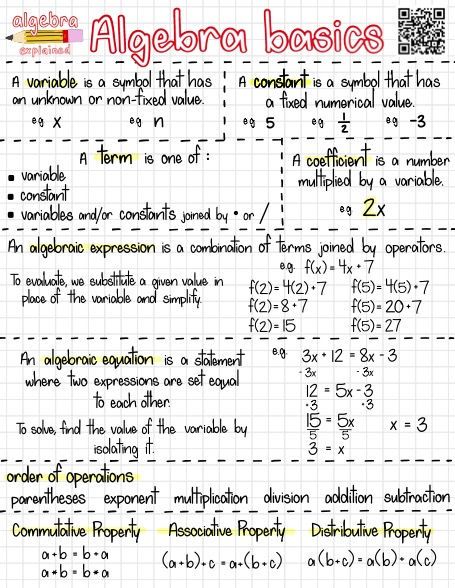 algebra
explained
Algebra basics
A variable is a symbol that has
an unknown or non-fixed value.
eg x eg n
A constant is a symbol that has
a fixed numerical value.
eg 5 eg 1/2 eg -3
A term is one of :
▪ variable
▪ constant
▪ variables and/or constants joined by • or /
A coefficient is a number
multiplied by a variable.
eg 2x
An algebraic expression is a combination of terms joined by operators.
eg f(x) = 4x + 7
To evaluate, we substitute a given value in
place of the variable and simplify.
f(2) = 4(2) + 7
f(2) = 8 + 7
f(2) = 15
f(5) = 4(5) + 7
f(5) = 20 + 7
f(5) = 27
An algebraic equation is a statement
where two expressions are set equal
to each other.
To solve, find the value of the variable by
isolating it.
eg 3x + 12 = 8x - 3
-3x -3x
12 = 5x - 3
+3 +3
15 = 5x
5 5
3 = x
x = 3
order of operations
parentheses exponent multiplication division addition subtraction
Commutative Property
a + b = b + a
a * b = b * a
Associative Property
(a + b) + c = a + (b + c)
Distributive Property
a (b + c) = a(b) + a(c)